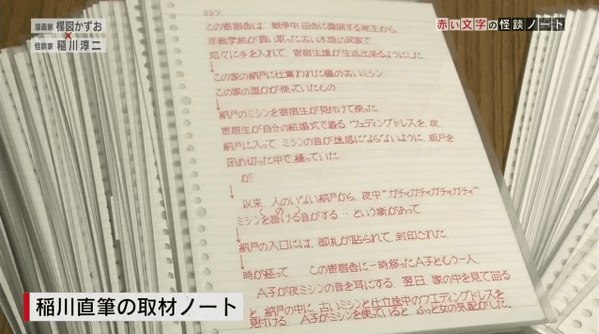 漫画家 楳図かずお
×
怪談家 稲川淳二
赤い文字の怪談ノート
ミシン
この寄宿舎は、戦争中 田舎に疎開する地主から
洋裁学校が買い取った古い木造の民家で
処々に手を入れて 寄宿生達が生活出来るようにした
この家の納戸に仕舞われた儘の古いミシン
この家の誰かが使っていたもの
納戸のミシンを寄宿生が見付けて使った
寄宿生が自分の結婚式で着る ウェディングドレスを、夜
納戸に入って ミシンの音が迷惑にならないように、板戸を
閉め切った中で縫っていた
が
以来 人のいない納戸から、夜中"ガチャガチャガチャガチャ"
ミシンを掛ける音がする‥という噂があって
納戸の入口には、御札が貼られて、封印された
時が経って この寄宿舎に一時移ったA子ともう一人
A子が夜ミシンの音を耳にする 翌日、家の中を見て回る
と 納戸の中に 古いミシンと仕立途中のウエディングドレスを
見付ける。A子がミシンを使っていると、ふっと女の気配がした。
稲川直筆の取材ノート